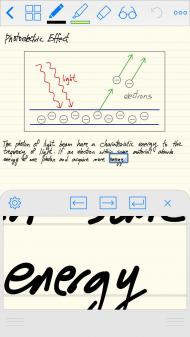 Photoelectric Effect
light
electrons
The photon of light beam have a characteristic energy to the
frequency of light. If an electron within some material absorbs
energy of one photon and acquire more energy
some
energy